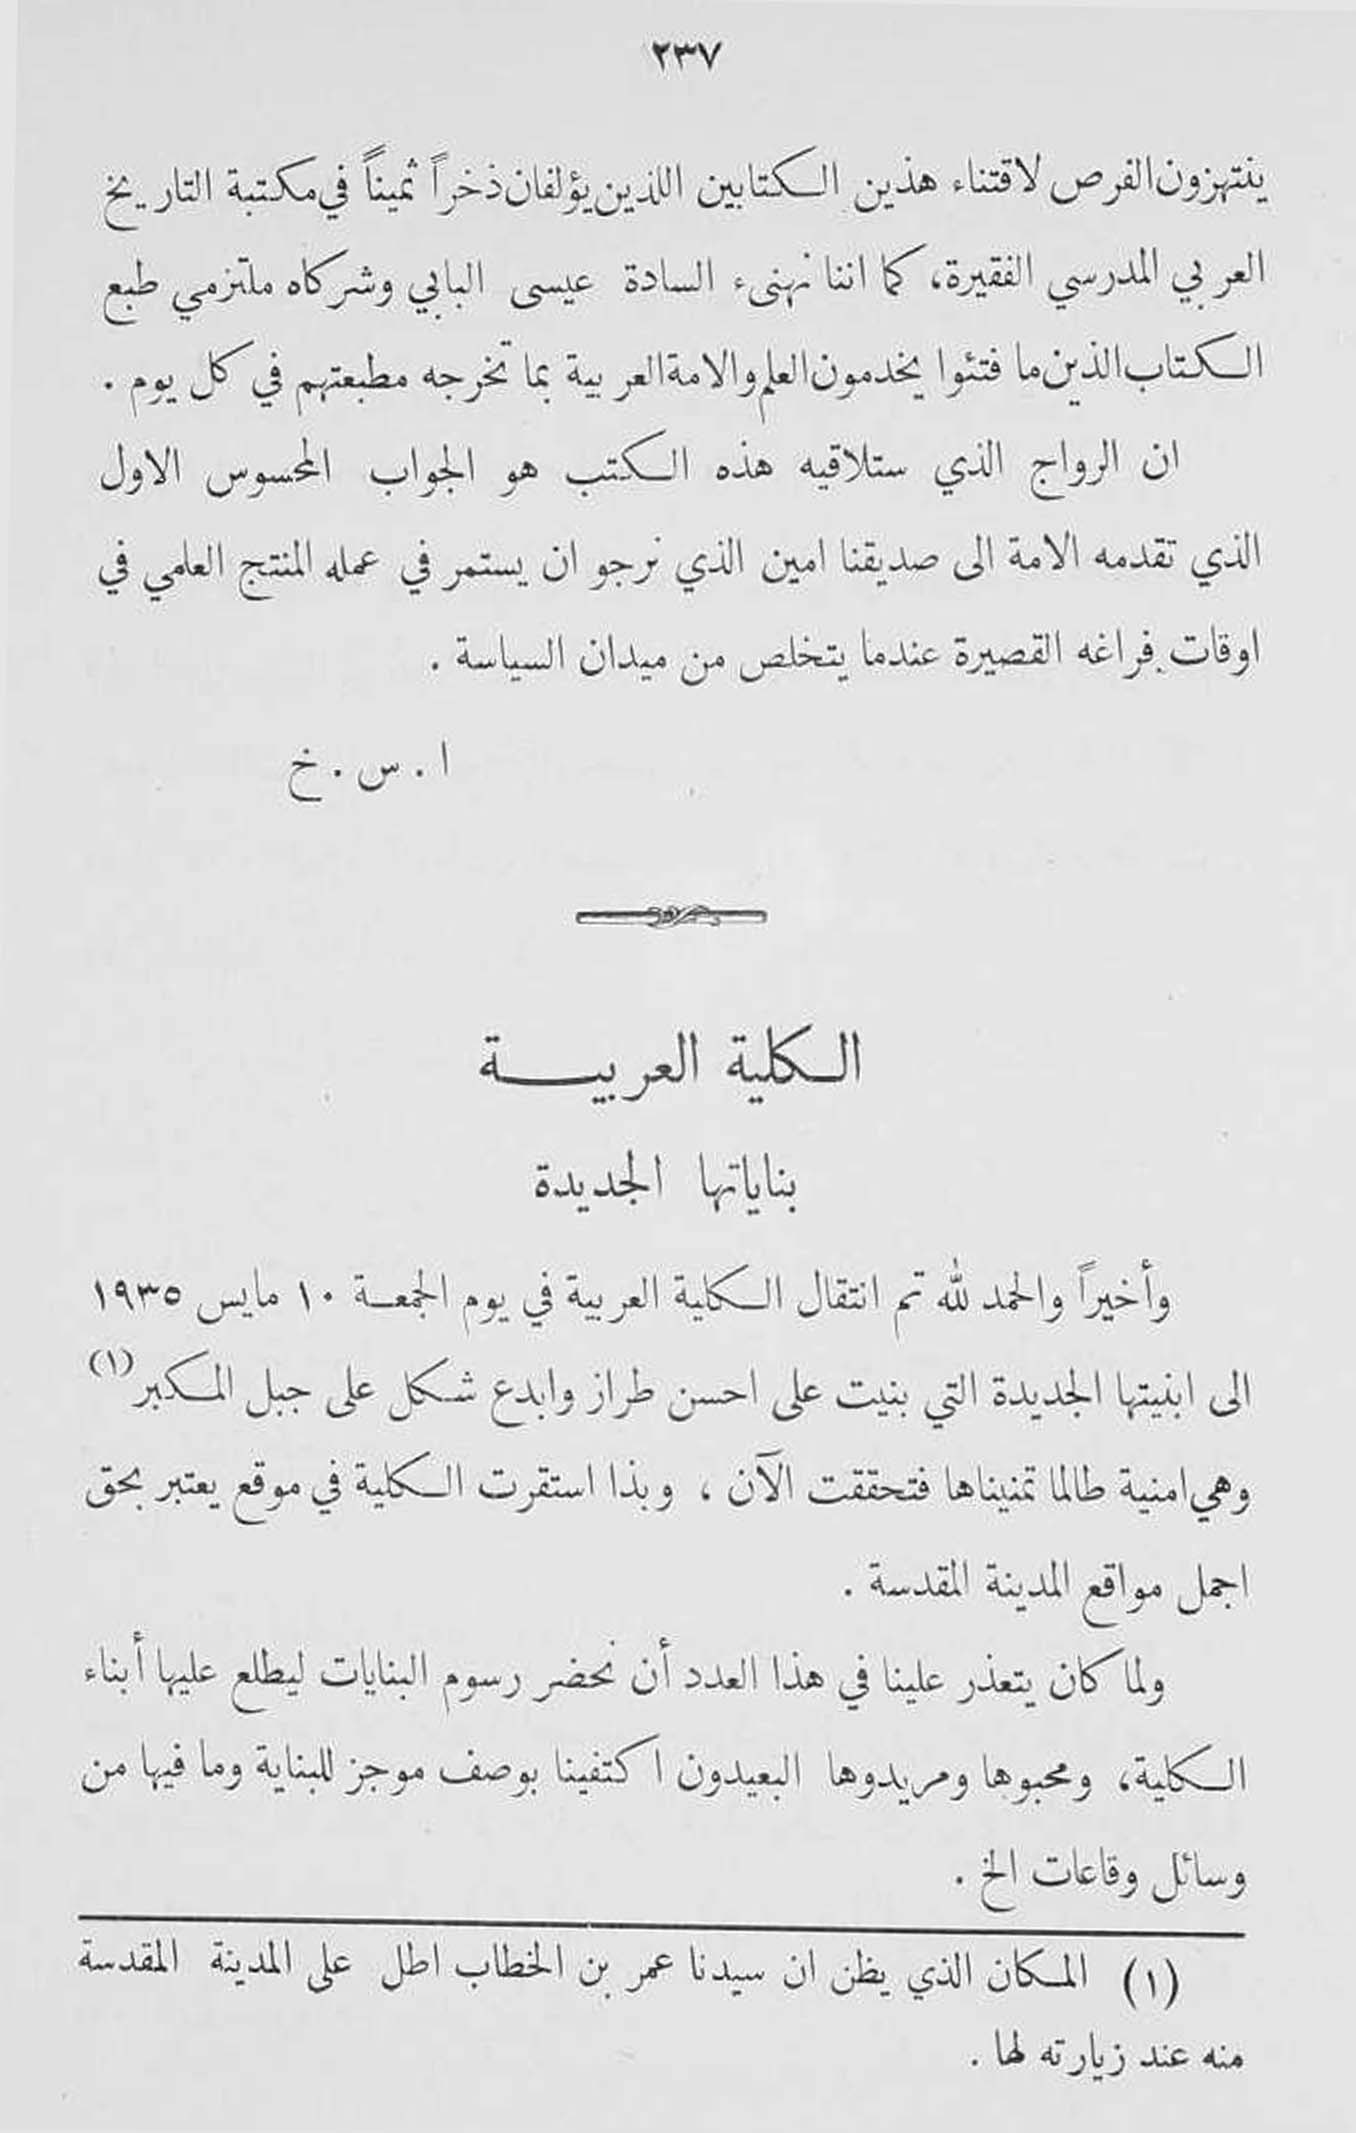 ٢٣٧
ينتهزون الفرص لاقتناء هذين الكتابين اللذين يؤلفان ذخراً ثميناً في مكتبة التاريخ
العربي المدرسي الفقيرة، كما اننا نهنىء السادة عيسى البابي وشركاه ملتزمي طبع
الكتاب الذين ما فتئوا يخدمون العلم والامة العربية بما تخرجه مطبعتهم في كل يوم .
ان الرواج الذي ستلاقيه هذه الكتب هو الجواب المحسوس الاول
الذي تقدمه الامة الى صديقنا امين الذي نرجو ان يستمر في عمله المنتج العلمي في
اوقات فراغه القصيرة عندما يتخلص من ميدان السياسة .
ا . س . خ
الكلية العربية
بناياتها الجديدة
وأخيراً والحمد لله تم انتقال الكلية العربية في يوم الجمعة ١٠ مايس ١٩٣٥
الى ابنيتها الجديدة التي بنيت على احسن طراز وابدع شكل على جبل المكبر (١)
وهي امنية طالما تمنيناها فتحققت الآن ، وبذا استقرت الكلية في موقع يعتبر بحق
اجمل مواقع المدينة المقدسة .
ولما كان يتعذر علينا في هذا العدد أن نحضر رسوم البنايات ليطلع عليها أبناء
الكلية، ومحبوها ومريدوها البعيدون اكتفينا بوصف موجز للبناية وما فيها من
وسائل وقاعات الخ .
(١) المكان الذي يظن ان سيدنا عمر بن الخطاب اطل على المدينة المقدسة
منه عند زيارته لها .